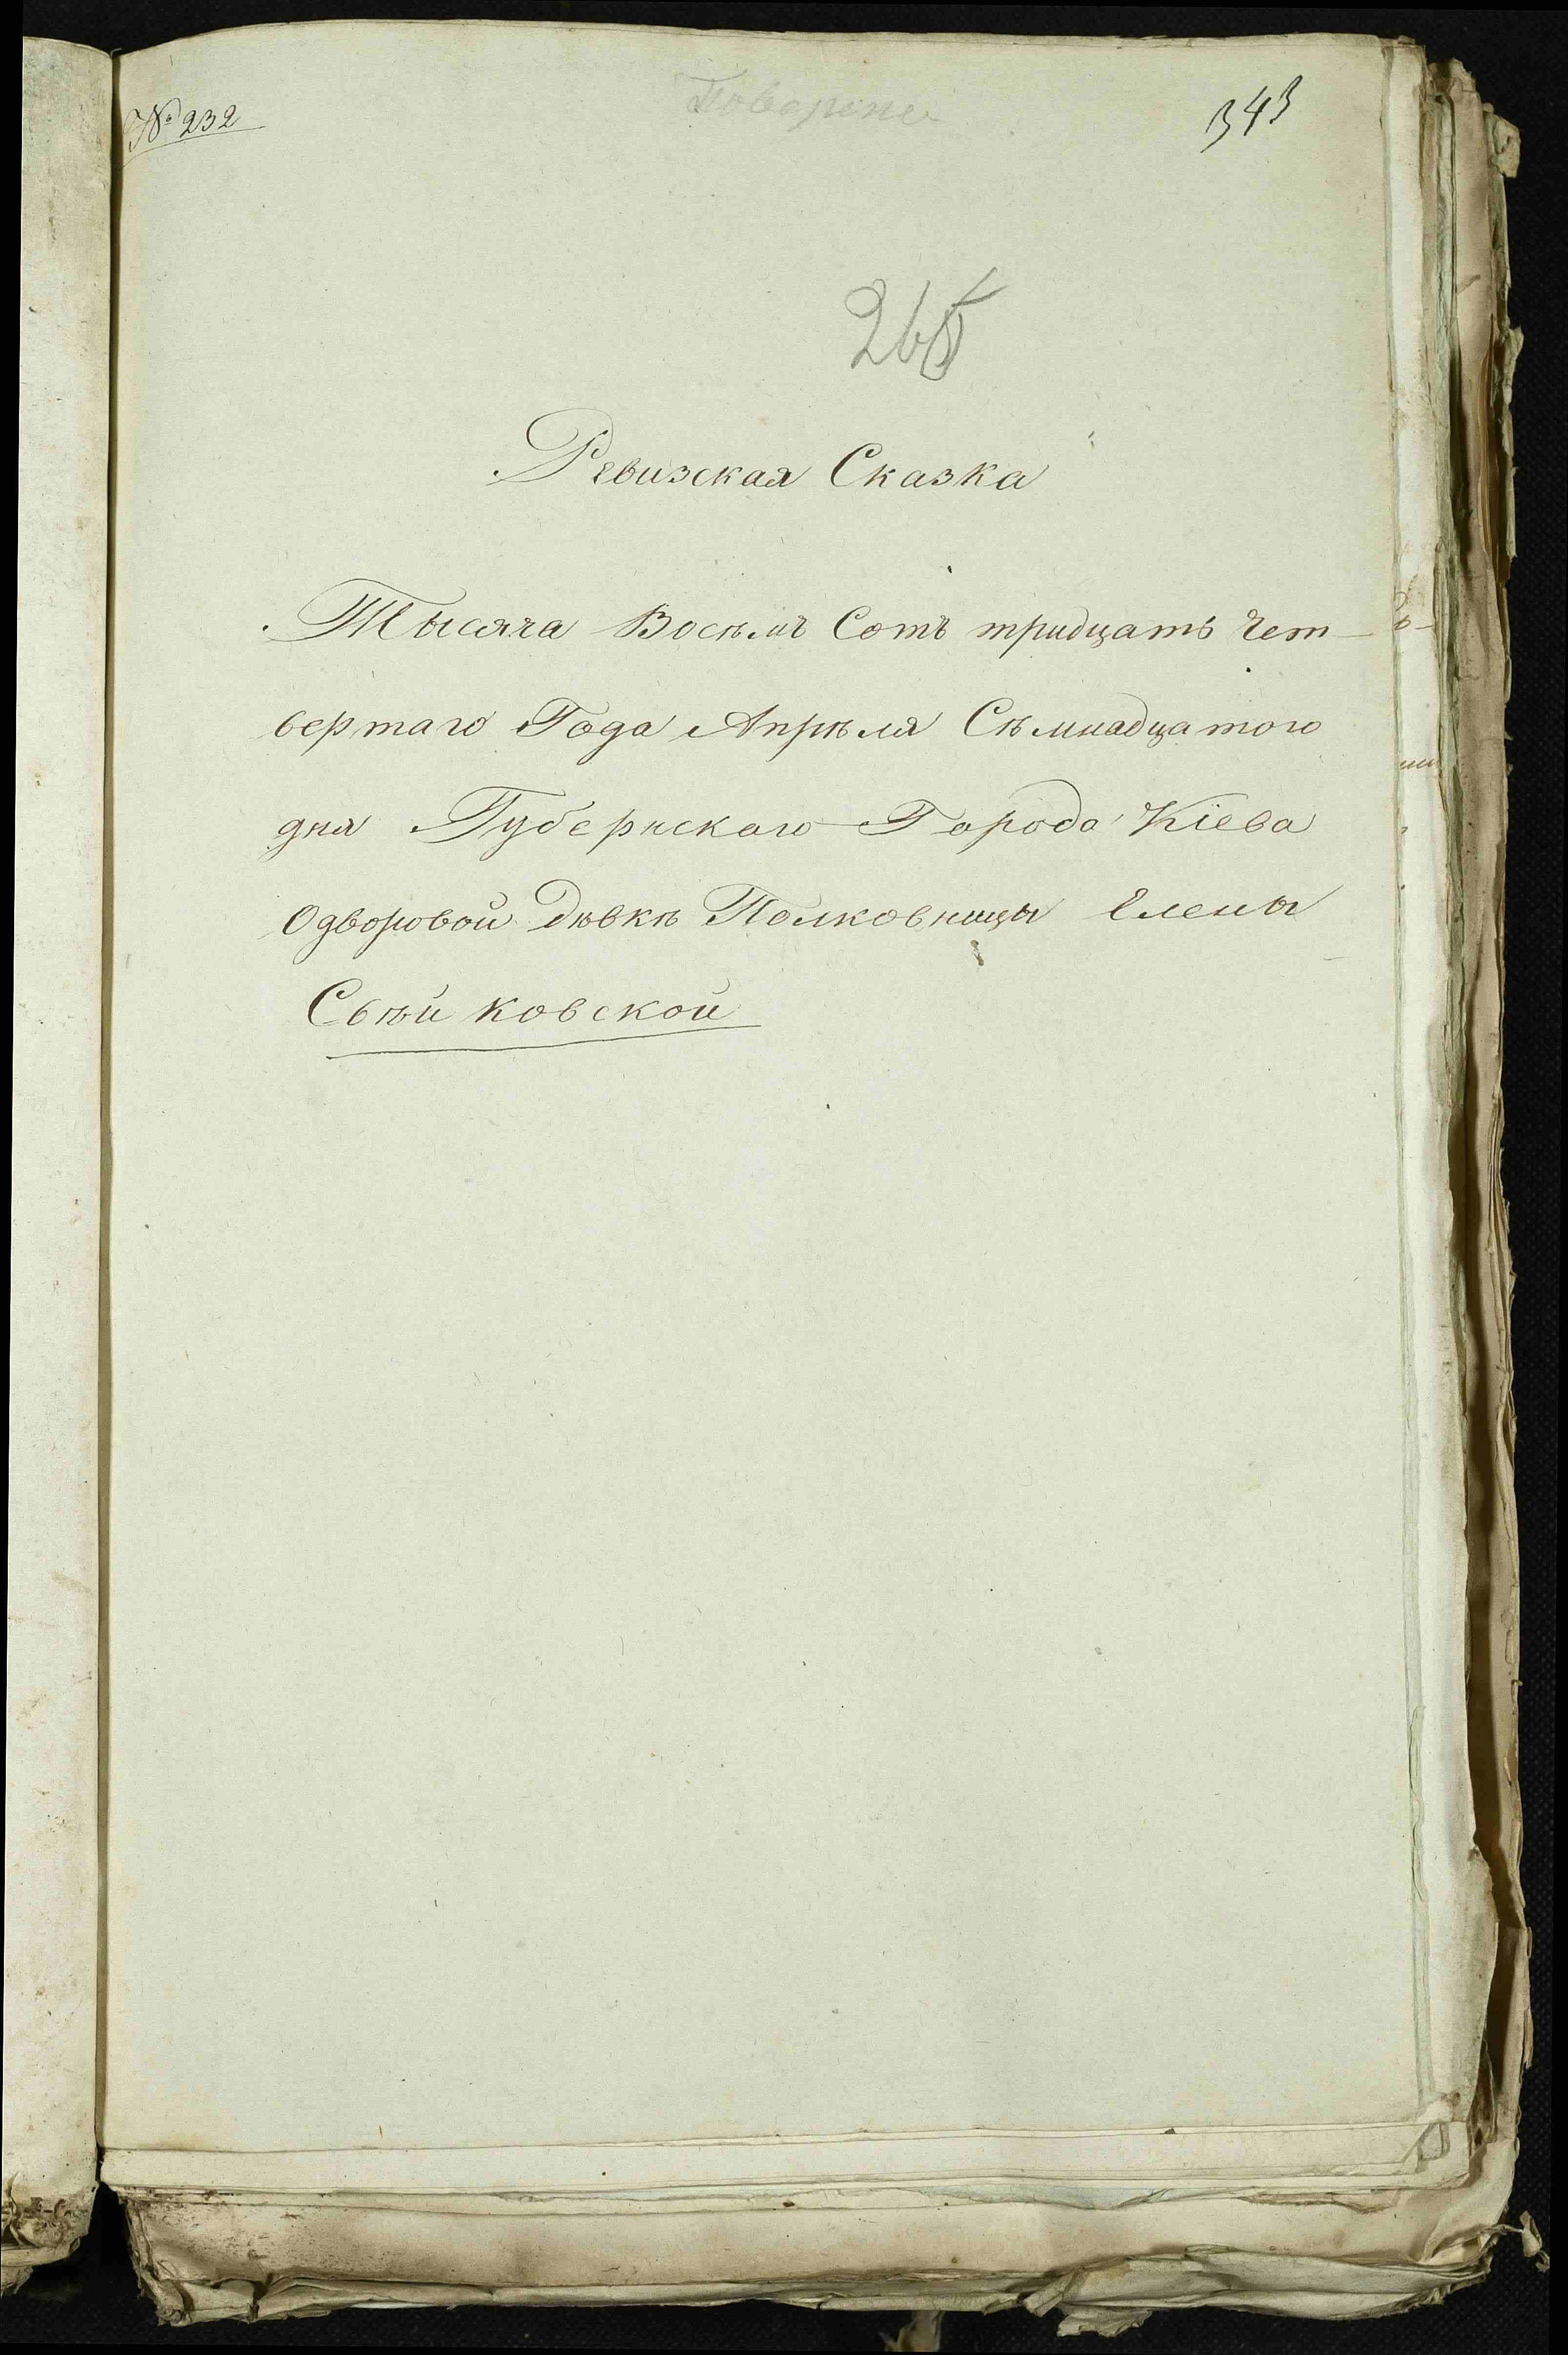 № 232
343
Ревизская Сказка
Тысяча Восѣмъ Сотъ тридцать Чет-
вертаго Года Апрѣля Сѣмнадцатого
дня Губернскаго Города Кіева
О дворовой Дѣвкѣ Полковницы Елены
Свѣйковской